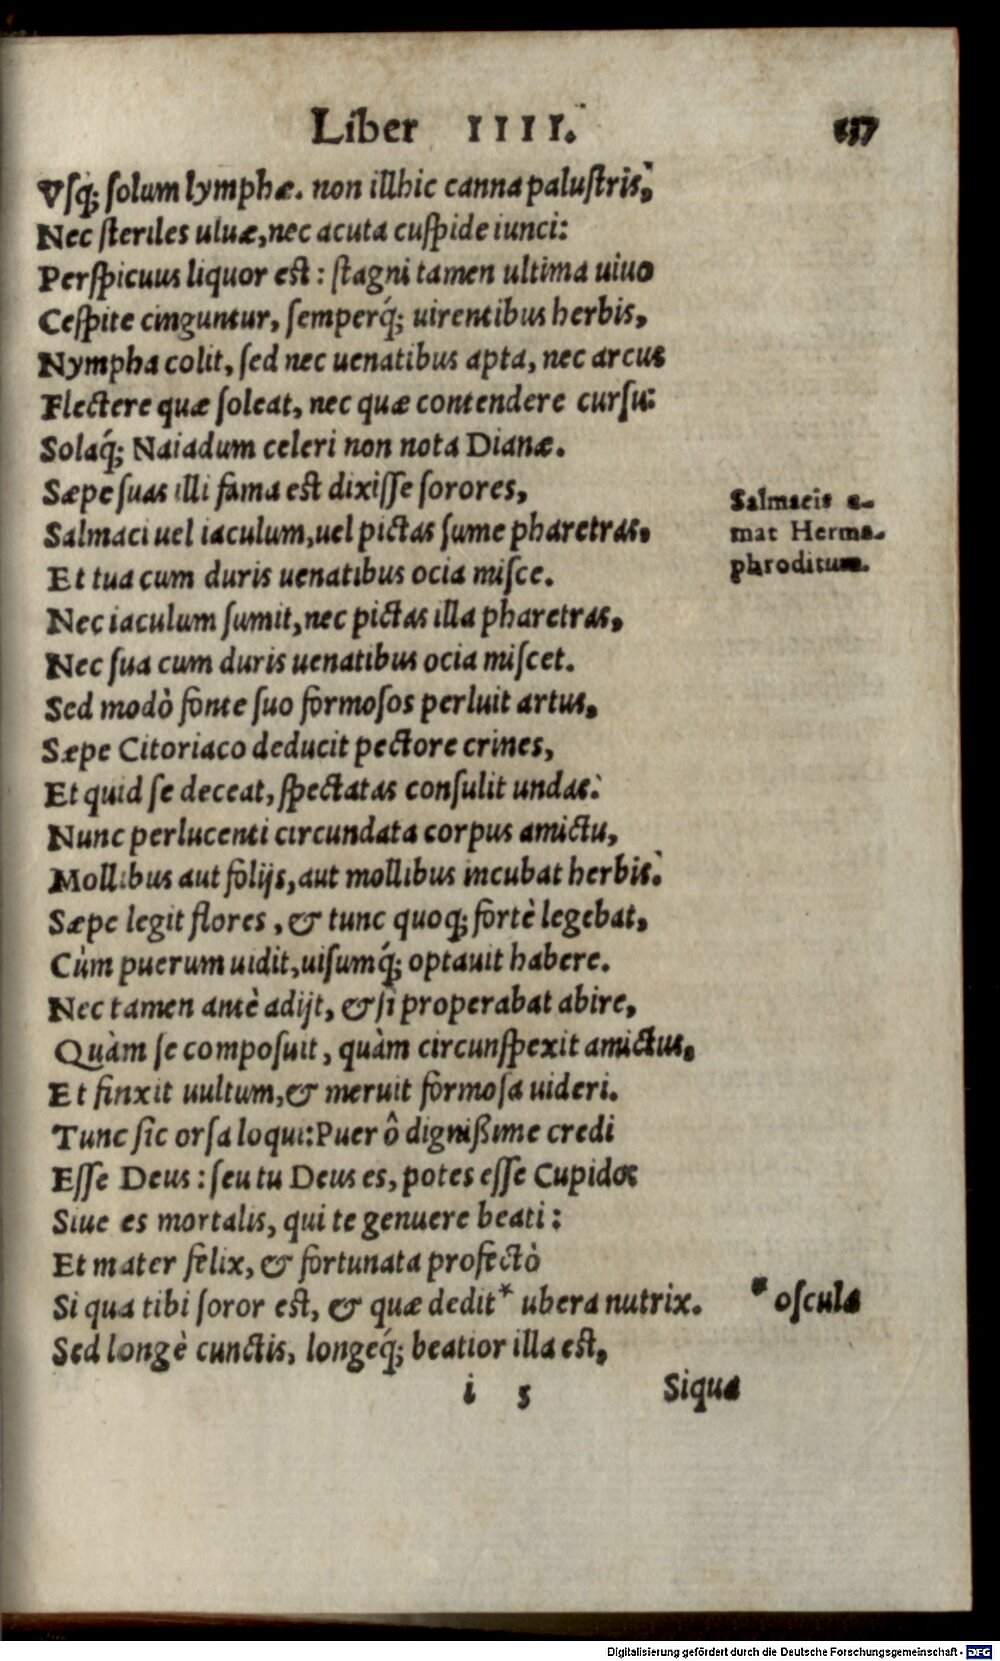 Liber IIII. 137
Vsq; ſolum lymphæ. non illhic canna paluſtris,
Nec ſteriles uluæ, nec acuta cuſpide iunci:
Perſpicuus liquor eſt: ſtagni tamen ultima uiuo
Ceſpite cinguntur, ſemperq́; uirentibus herbis,
Nympha colit, ſed nec uenatibus apta, nec arcus
Flectere quæ ſoleat, nec quæ contendere curſu:
Solaq́; Naiadum celeri non nota Dianæ.
Sæpe ſuas illi fama eſt dixiſſe ſorores,
Salmaci uel iaculum, uel pictas ſume pharetras,
Et tua cum duris uenatibus ocia miſce.
Salmacis a-
mat Herma-
phroditum.
Nec iaculum ſumit, nec pictas illa pharetras,
Nec ſua cum duris uenatibus ocia miſcet.
Sed modò fonte ſuo formoſos perluit artus,
Sæpe Citoriaco deducit pectore crines,
Et quid ſe deceat, ſpectatas conſulit undas:
Nunc perlucenti circundata corpus amictu,
Mollibus aut folijs, aut mollibus incubat herbis.
Sæpe legit flores, & tunc quoq; fortè legebat,
Cùm puerum uidit, uiſumq́; optauit habere.
Nec tamen antè adijt, & ſi properabat abire,
Quàm ſe compoſuit, quàm circunſpexit amictus,
Et finxit uultum, & meruit formoſa uideri.
Tunc ſic orſa loqui: Puer ô digniſſime credi
Eſſe Deus: ſeu tu Deus es, potes eſſe Cupido:
Siue es mortalis, qui te genuere beati:
Et mater felix, & fortunata profectò
Si qua tibi ſoror eſt, & quæ dedit* ubera nutrix. * oſcula
Sed longè cunctis, longeq́; beatior illa eſt,
i 5 Siqua
Digitalisierung gefördert durch die Deutsche Forschungsgemeinschaft - DFG